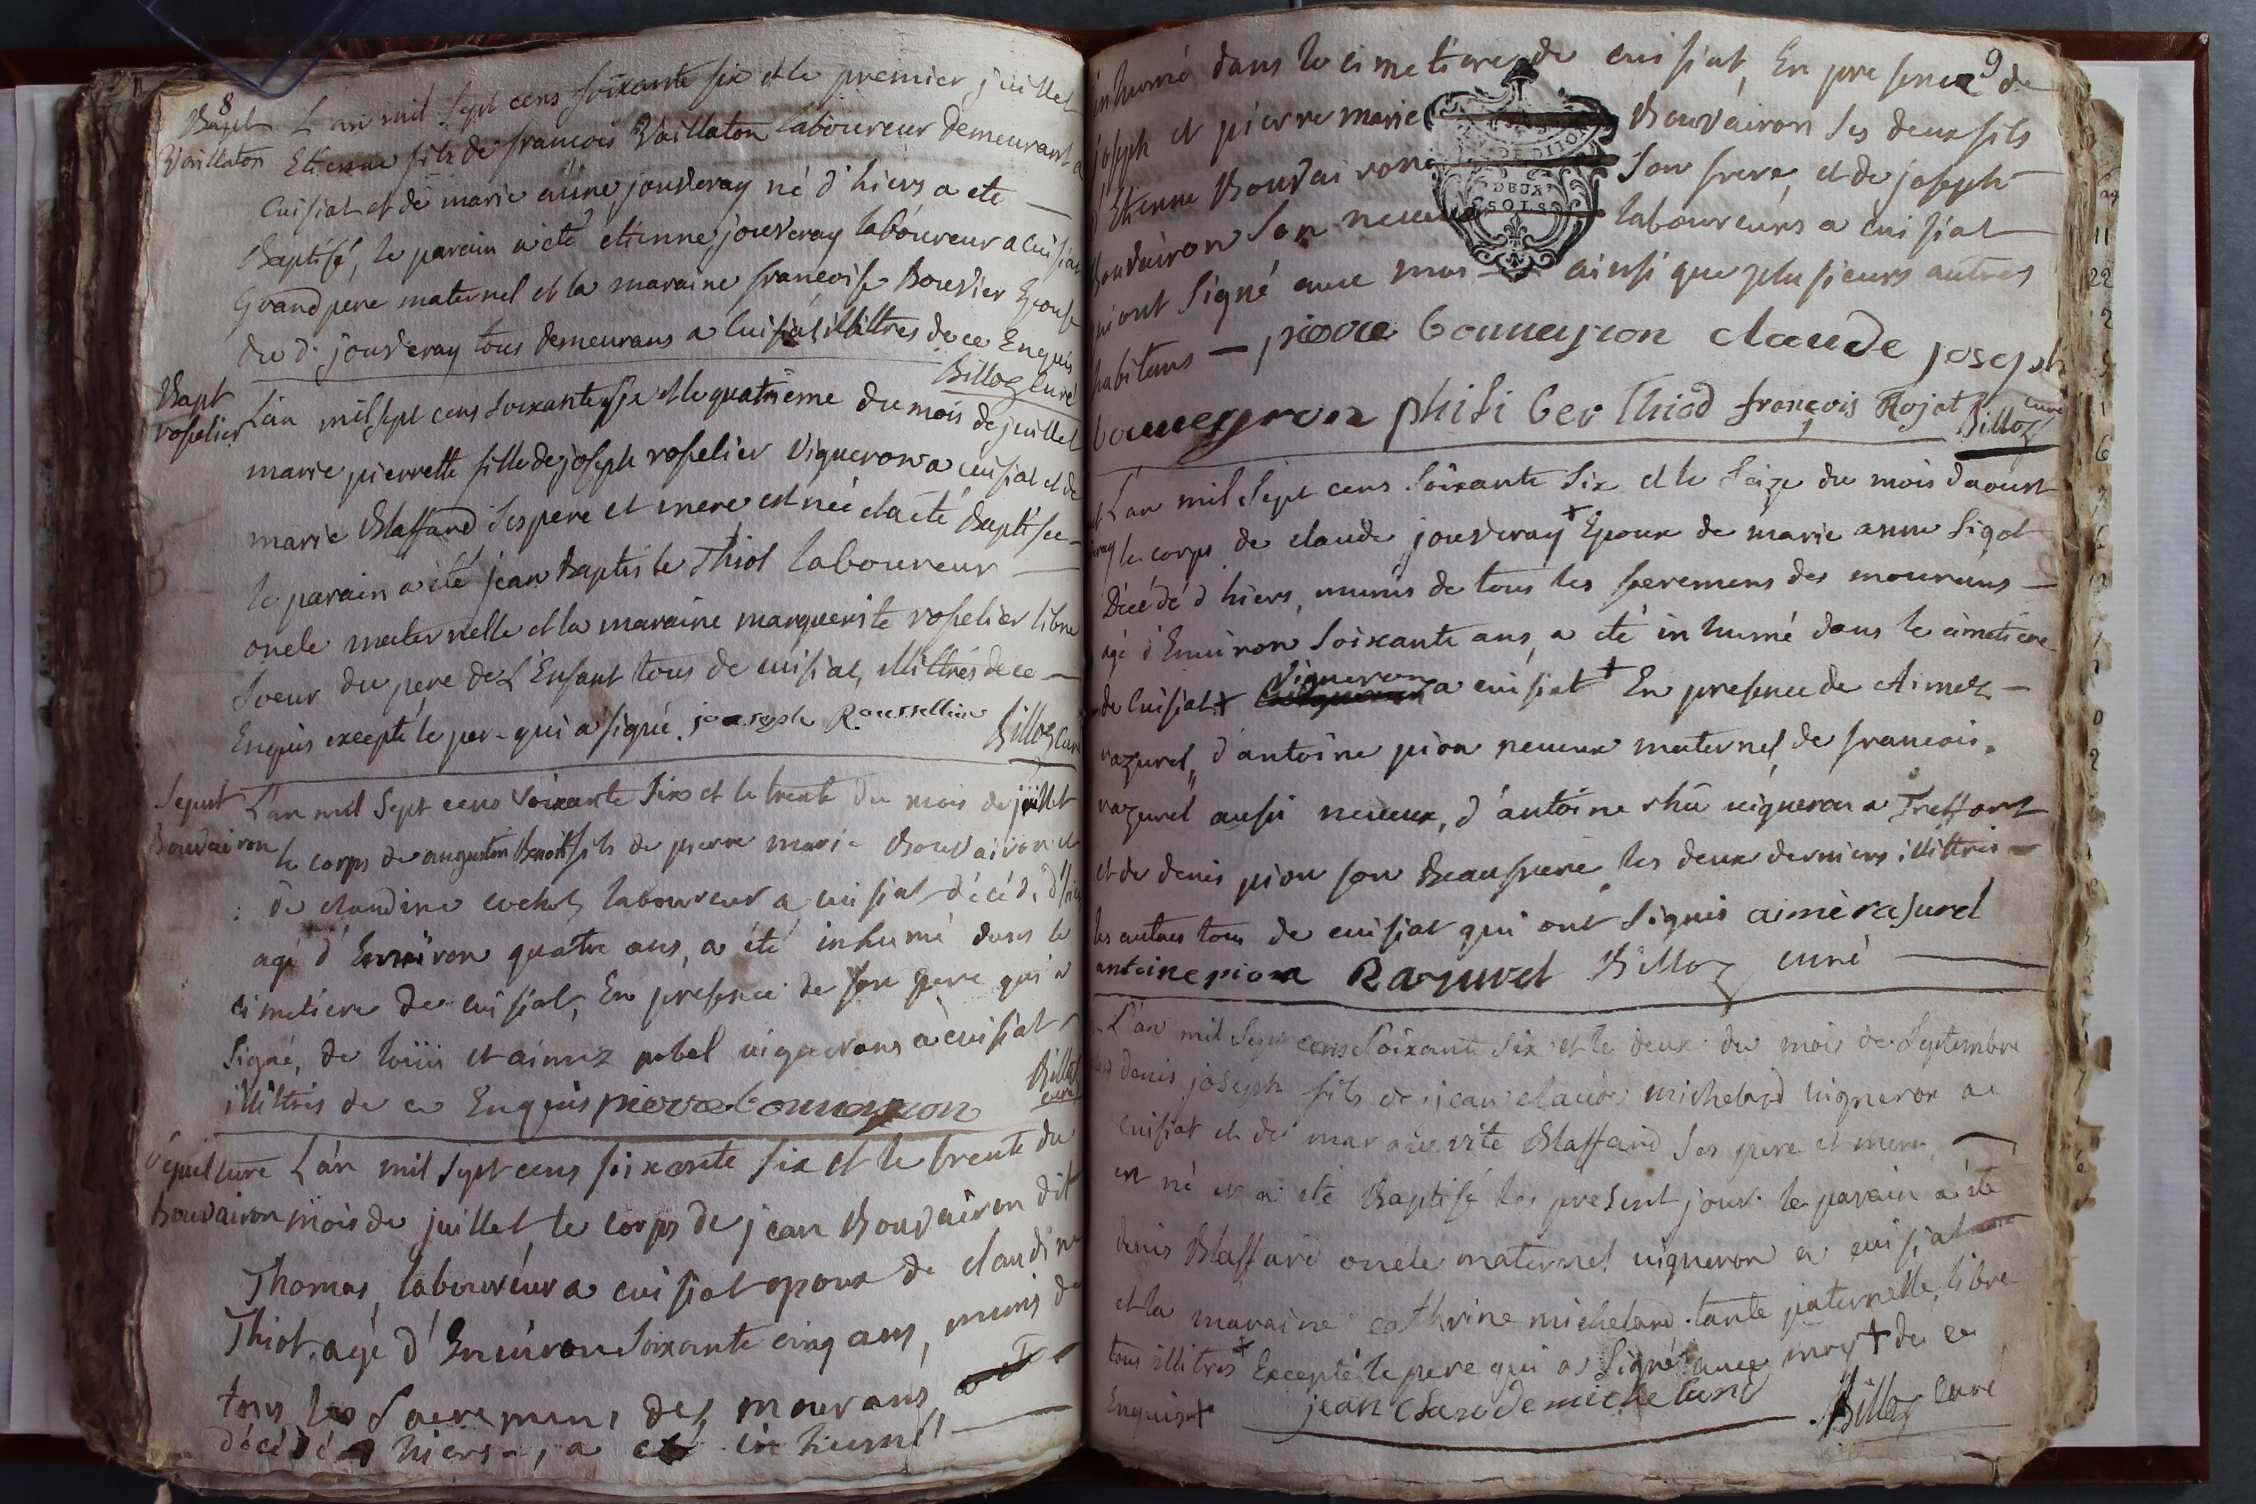 8
Bapt
Vaillaton
L'an mil sept cens soixante six et le premier juillet
Etienne fils de francois Vaillaton laboureur demeurant a
Cuisiat et de marie aime jouveray né d'hiers a ete
Baptisé, le parain a été etienne jouveray laboureur a cuisiat
Grand pere maternel et la maraine francoise Bouvier Epouse
du d. jouveray tous demeurans a Cuisiat, illittres de ce Enquis
Billoz curé
Bapt
rosselier
L'an mil sept cens soixante six et le quatrieme du mois de juillet
marie pierrette fille de joseph rosselier Vigneron a cuisiat et de
marie Blaffard ses pere et mere est née et a eté Baptisée
le parain a été jean Baptiste Thiot laboureur
oncle maternelle et la maraine marguerite rosselier libre
Soeur du pere de L'Enfant tous de cuisiat, illittrés de ce
Enquis excepté le pere qui a signé. joaseph Rousselliere Billoz curé
Sepult
Bouvairon
L'an mil sept cens soixante six et le trente du mois de juillet
le corps de augustin Benoit fils de pierre marie Bouvairon et
de claudine cochet laboureur a cuisiat décédé d'hier
agé d'Environ quatre ans, a été inhumé dans le
cimetiere de cuisiat, En presence de son pere qui a
signé, de louis et aimez pobel vignerons a cuisiat
illittrés de ce Enquis pierre bouueyron Billoz curé
Sepulture
Bouvairon
L'an mil sept cens soixante six et le trente du
mois de juillet le corps de jean Bouvairon dit
Thomas, laboureur a cuisiat epoux de claudine
Thiot, agé d'Environ soixante cinq ans, munis de
tous les Sacremens des mourans
décédé d'hiers, a eté inhumé
9
inhumé dans le cimetiere de cuisiat, En presence de
joseph et pierre marie Bouvairon ses deux fils
d'Etienne Bouvairon son frere, et de joseph
Bouvairon son neueu laboureurs a cuisiat
qui ont signé auec moi ainsi que plusieurs autres
DE DIJON
DEUX
SOLS
habitans — pierre bouueyron claude joseph
bouueyron philiber thiod françois Rojat Billoz curé
L'an mil sept cens soixante six et le seize du mois d'aoust
le corps de claude jouveray + Epoux de marie anne Sigot
Décédé d'hiers, munis de tous les sacremens des mourans
agé d'Enuiron soixante ans, a eté inhumé dans le cimetiere
de Cuisiat + Vigneron a cuisiat + En presence de Aimez
razurel, d'antoine pion neueux maternel, de francois
razurel aussi neueux, d'antoine rhü uigneron a Treffort
et de denis pion son Beaufrere les deux derniers illittrés
les autres tous de cuisiat qui ont signés aimé rasurel
antoine pion Razurel Billoz curé
L'an mil sept cens soixante six et le deux du mois de Septembre
denis joseph fils de jean claude michelard uigneron a
cuisiat et de marguerite Blaffard ses pere et mere,
est né et a eté Baptisé le present jour. le parain a été
denis Blaffard oncle maternel uigneron a cuisiat
et la maraine cathrine michelard tante paternelle, libre
tous illitres + Excepté le pere qui a signé auec moy + de ce
Enquis + jean Claude michelard Billoz curé